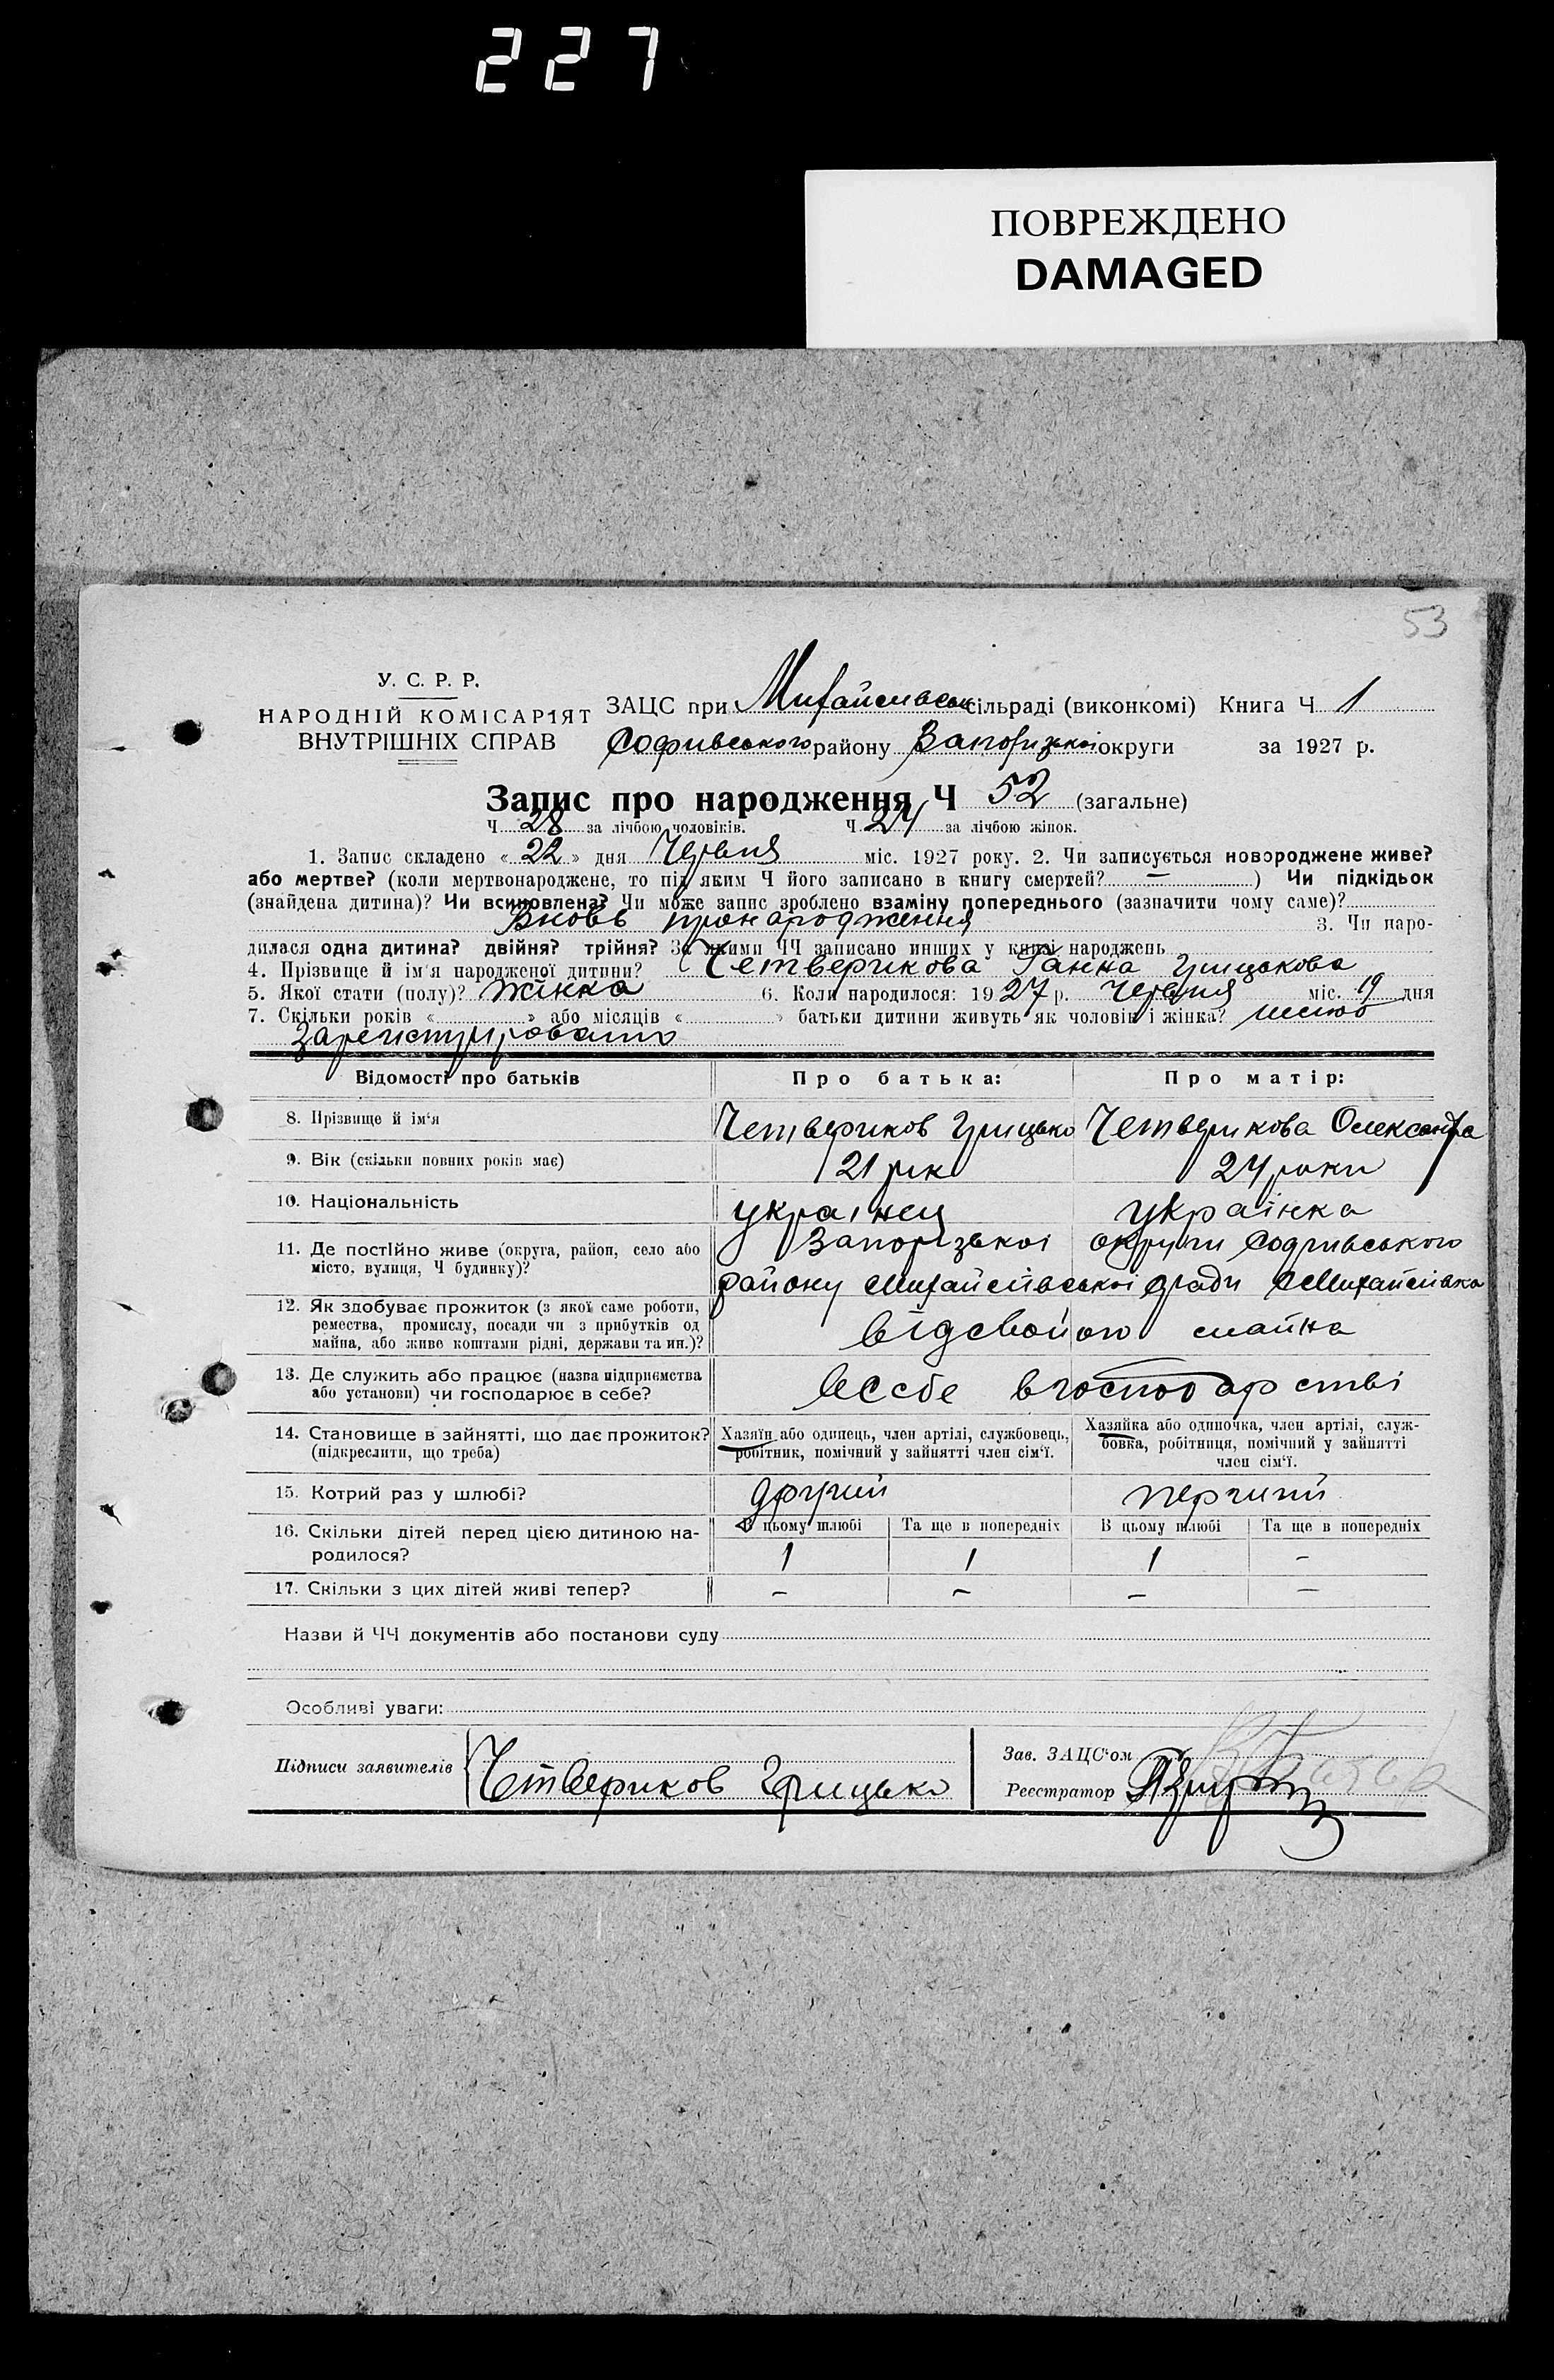 227
ПОВРЕЖДЕНО
DAMAGED
53
У. С. Р. Р.
НАРОДНІЙ КОМІСАРІЯТ
ВНУТРІШНІХ СПРАВ
ЗАЦС при Михайлівськ сільраді (виконкомі) Книга Ч 1
Софивського району Запорізькоі округи за 1927 р.
Запис про народження Ч 52 (загальне)
Ч 28 за лічбою чоловіків. Ч 24 за лічбою жінок.
1. Запис складено « 22 » дня Червня міс. 1927 року. 2. Чи записується новороджене живе?
або мертве? (коли мертвонароджене, то під яким Ч його записано в книгу смертей? — ) Чи підкідьок
(знайдена дитина)? Чи всиновлена? Чи може запис зроблено взаміну попереднього (зазначити чому саме)?
Вновь пронародження 3. Чи наро-
дилася одна дитина? двійня? трійня? За якими ЧЧ записано инших у книзі народжень
4. Прізвище й ім'я народженої дитини? Четверикова Ганна Грицькова
5. Якої стати (полу)? Жінка 6. Коли народилося: 1927 р. Червня міс. 19 дня
7. Скільки років « » або місяців « » батьки дитини живуть як чоловік і жінка? шлюб
Зарегистрировано
Відомості про батьків Про батька: Про матір:
8. Прізвище й ім'я Четвериков Грицько Четверикова Олександра
9. Вік (скільки повних років має) 21 рік 24 роки
10. Національність украінец украінка
11. Де постійно живе (округа, район, село або Запорізькоі округи Софривського
місто, вулиця, Ч будинку)? району Михайлівськоі с/ради с Михайлівка
12. Як здобуває прожиток (з якої саме роботи,
ремества, промислу, посади чи з прибутків од
майна, або живе коштами рідні, держави та ин.)? відсвойого майна
13. Де служить або працює (назва підприємства
або установи) чи господарює в себе? всебе вгосподарстві
14. Становище в зайнятті, що дає прожиток? Хазяїн або одинець, член артілі, службовець, Хазяйка або одиночка, член артілі, служ-
(підкреслити, що треба) робітник, помічний у зайнятті член сім'ї. бовка, робітниця, помічний у зайнятті
член сім'ї.
15. Котрий раз у шлюбі? другий перший
16. Скільки дітей перед цією дитиною на- В цьому шлюбі Та ще в попередніх В цьому шлюбі Та ще в попередніх
родилося? 1 1 1 –
17. Скільки з цих дітей живі тепер? – – – –
Назви й ЧЧ документів або постанови суду
Особливі уваги:
Підписи заявителів Четвериков Грицько
Зав. ЗАЦС'ом
Реєстратор